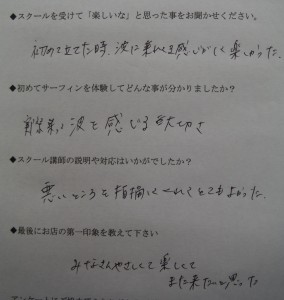 ◆スクールを受けて「楽しいな」と思った事をお聞かせください。
初めて立てた時、波に乗れてる感じがして楽しかった。
◆初めてサーフィンを体験してどんな事が分かりましたか？
波を感じる大切さ
◆スクール講師の説明や対応はいかがでしたか？
悪いところを指摘してくれてとてもよかった。
◆最後にお店の第一印象を教えて下さい
みなさんやさしくて楽しくて
また来たいと思った